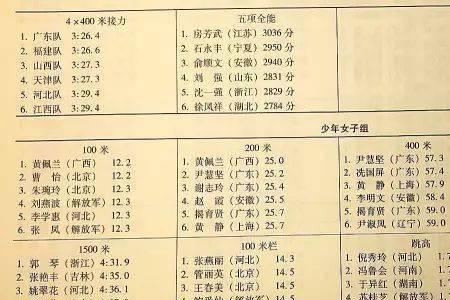 4×400 米接力
1. 广东队 3:26.4
2. 福建队 3:26.6
3. 山西队 3:27.3
4. 天津队 3:27.3
5. 河北队 3:29.4
6. 江西队 3:29.4
五项全能
1. 房芳武（江苏）3036 分
2. 石永丰（宁夏）2950 分
3. 俞顺文（安徽）2940 分
4. 刘 强（山东）2831 分
5. 沈一强（浙江）2829 分
6. 徐凤祥（湖北）2784 分
少年女子组
100 米
1. 黄佩兰（广西） 12.2
2. 曹 怡（北京） 12.2
3. 朱琬玲（北京） 12.3
4. 刘燕波（解放军） 12.3
5. 李学惠（河北） 12.3
6. 张 凤（解放军） 12.3
200 米
1. 黄佩兰（广西）25.0
2. 尹慧坚（广东）25.2
3. 谢志玲（广东）25.4
4. 赵 霞（安徽）25.5
5. 揭育贤（广东）25.7
6. 黄 静（上海）25.7
400 米
1. 尹慧坚（广东）57.3
2. 冼国屏（广东）57.4
3. 黄 静（上海）57.9
4. 李明文（安徽）58.4
5. 揭育贤（广东）59.0
6. 尹淑凤（辽宁）59.0
1500 米
1. 郭 琴（浙江）4:31.9
2. 张艳丰（吉林）4:35.0
3. 姚翠花（河北）4:36.1
100 米栏
1. 张燕丽（河北） 14.3
2. 管丽英（北京） 14.5
3. 王春美（北京） 14.5
跳高
1. 倪秀玲（河北）
2. 冯鲁会（河南）
3. 于异红（湖南）